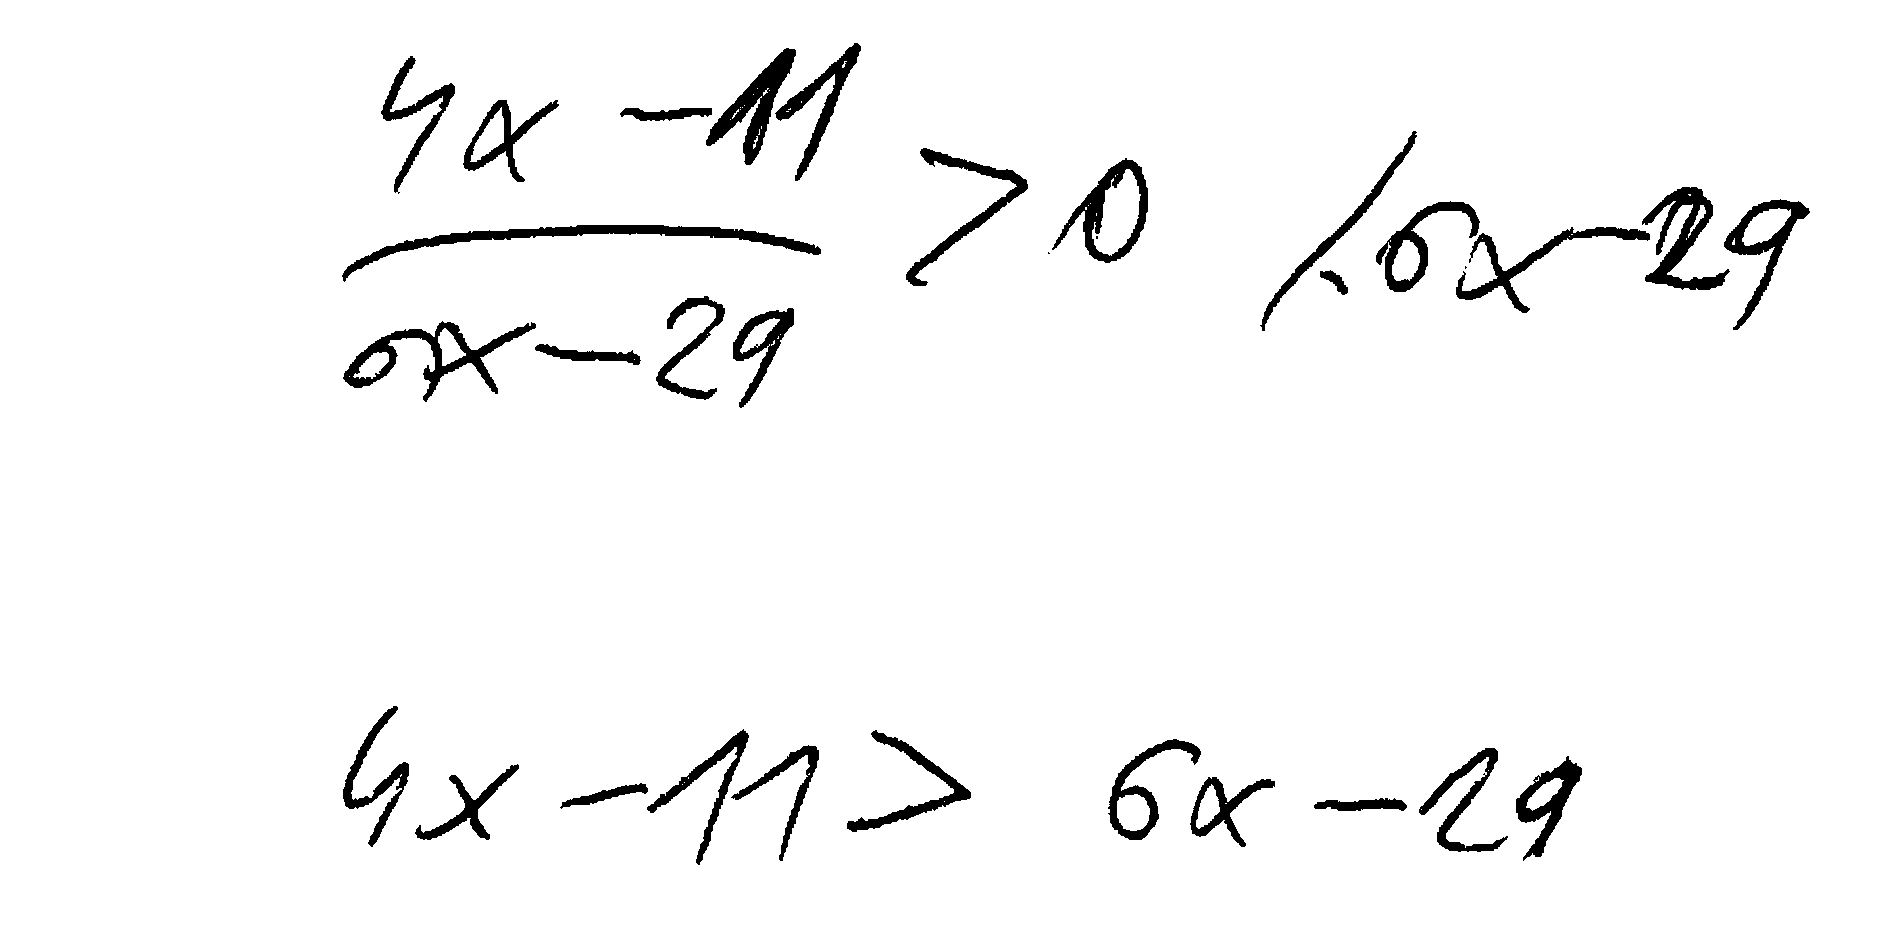 4x - 11
/ 6x - 29 > 0 / · 6x - 29
4x - 11 > 6x - 29